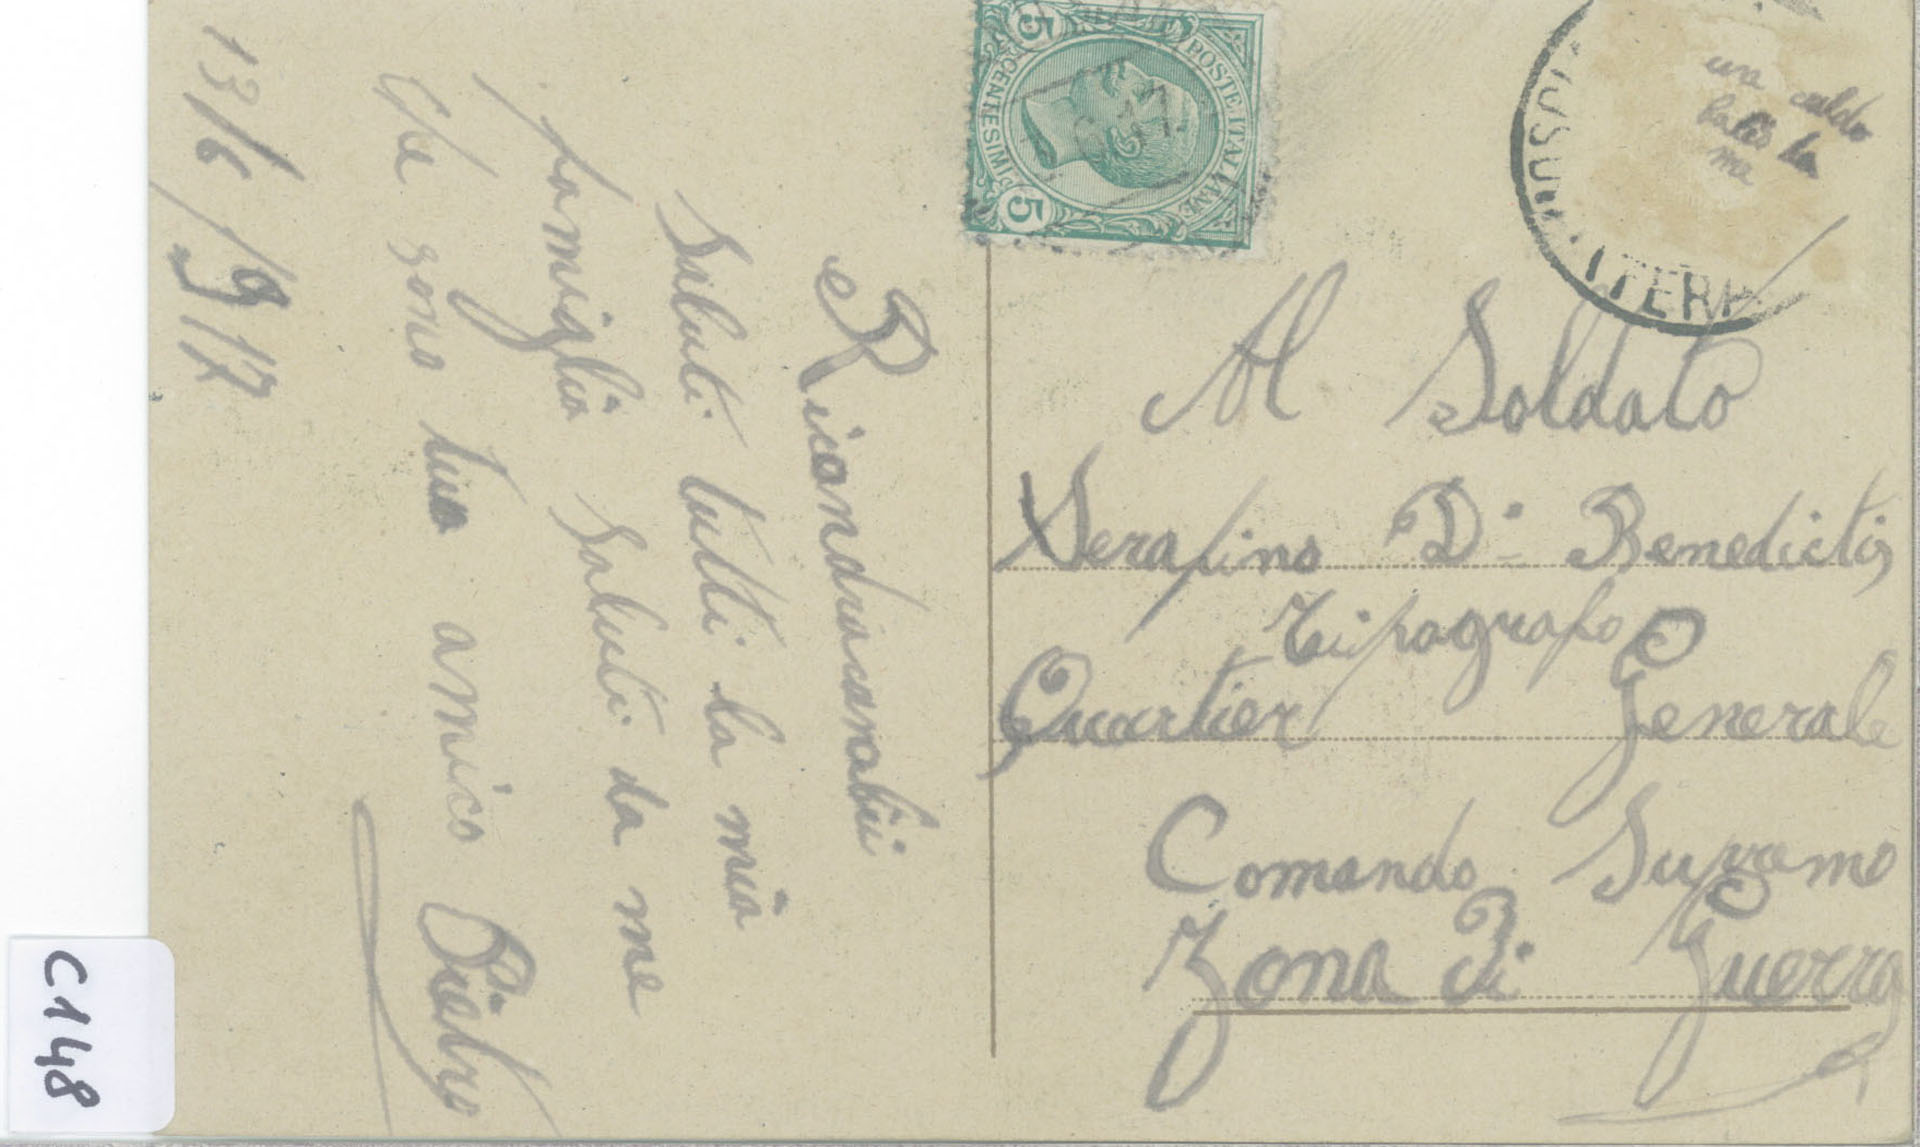 Ricondracanbii
Saluti tutti la mia
famiglia Saluti da me
che sono tuo amico Pietro
13/6/917
POSTE ITALIANE
5 CENTESIMI 5
17
una caldo
la
ma
TERA
Al Soldato
Serafino D. Benedictis
Tipografo
Quartier Generale
Comando Supremo
Zona Di Guerra
C148